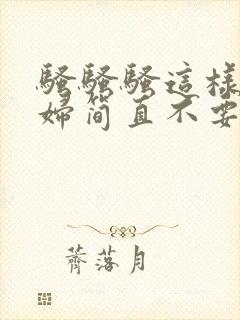 騷騷騷這樣
婦简直不要
薺落月